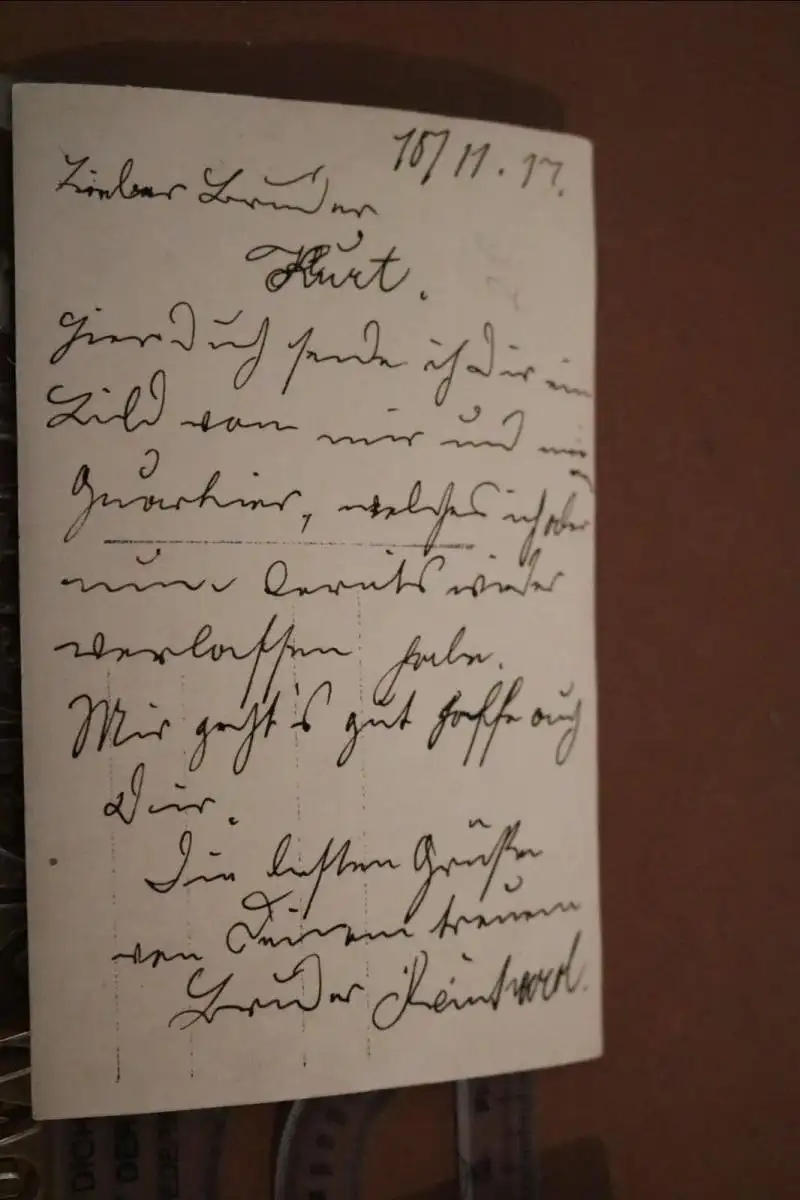 16/11.17.
Lieber Bruder
Kurt.
Hierduch sende ich Dir ein
Bild von mir und mein
Quartier, welches ich aber
nun bereits wieder
verlassen habe.
Mir geht's gut hoffe auch
Dir.
Die besten Grüße
von Deinem treuem
Bruder